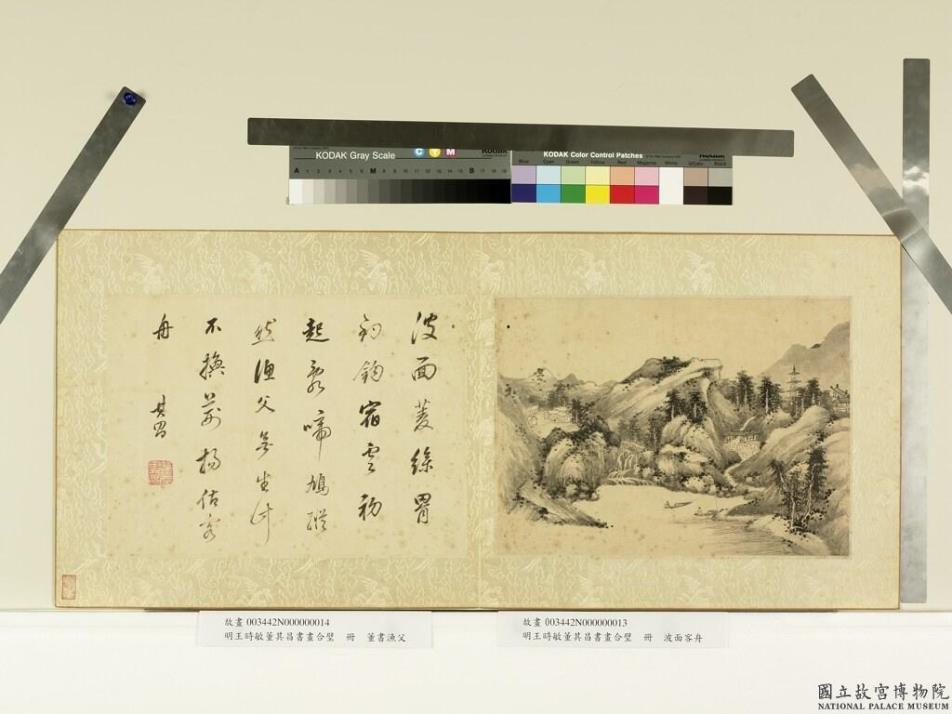 KODAK Gray Scale
C Y M
Kodak
A 1 2 3 4 5 6 M 8 9 10 11 12 13 14 15 B 17 18 19
KODAK Color Control Patches
Blue Cyan Green Yellow Red Magenta White 3/Color Black
波面菱絲罥
釣鉤宿雲初
起 啼鳩縱
然漁父無生計
不換荊楊估客
舟
其昌
故畫 003442N000000014
明王時敏董其昌書畫合璧 冊 董書漁父
故畫 003442N000000013
明王時敏董其昌書畫合璧 冊 波面客舟
國立故宮博物院
NATIONAL PALACE MUSEUM